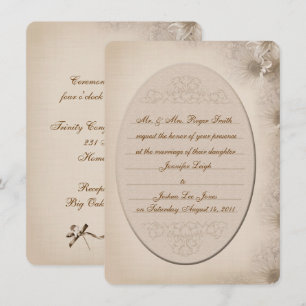 Ceremony
four o'clock
Trinity Con
231
Home
Recep
Big Oak
Mr. & Mrs. Roger Smith
request the honor of your presence
at the marriage of their daughter
Jennifer Leigh
to
Joshua Lee Jones
on Saturday August 14, 2011